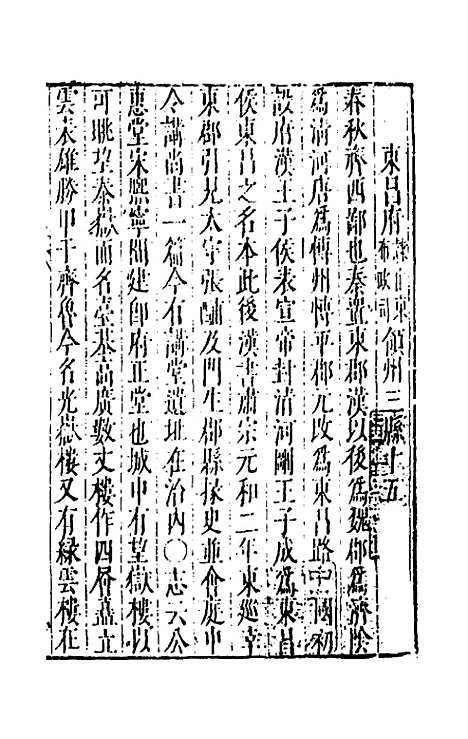 東昌府隸山東布政司領州三縣十五
春秋齊西鄙也秦置東郡漢以後為魏郡為濟陰
為清河唐為博州博平郡元改為東昌路 國初
設府漢王子侯表宣帝封清河剛王子成為東昌
侯東昌之名本此後漢書肅宗元和二年東巡幸
東郡引見太守張酺及門生郡縣掾史並會庭中
令講尚書一篇今有講堂遺址在治內○志六公
惠堂宋熙寧間建即府正堂也城中有望嶽樓以
可眺望泰嶽而名臺基高廣數丈樓作四層矗立
雲表雄勝甲于齊魯今名光嶽樓又有綠雲樓在